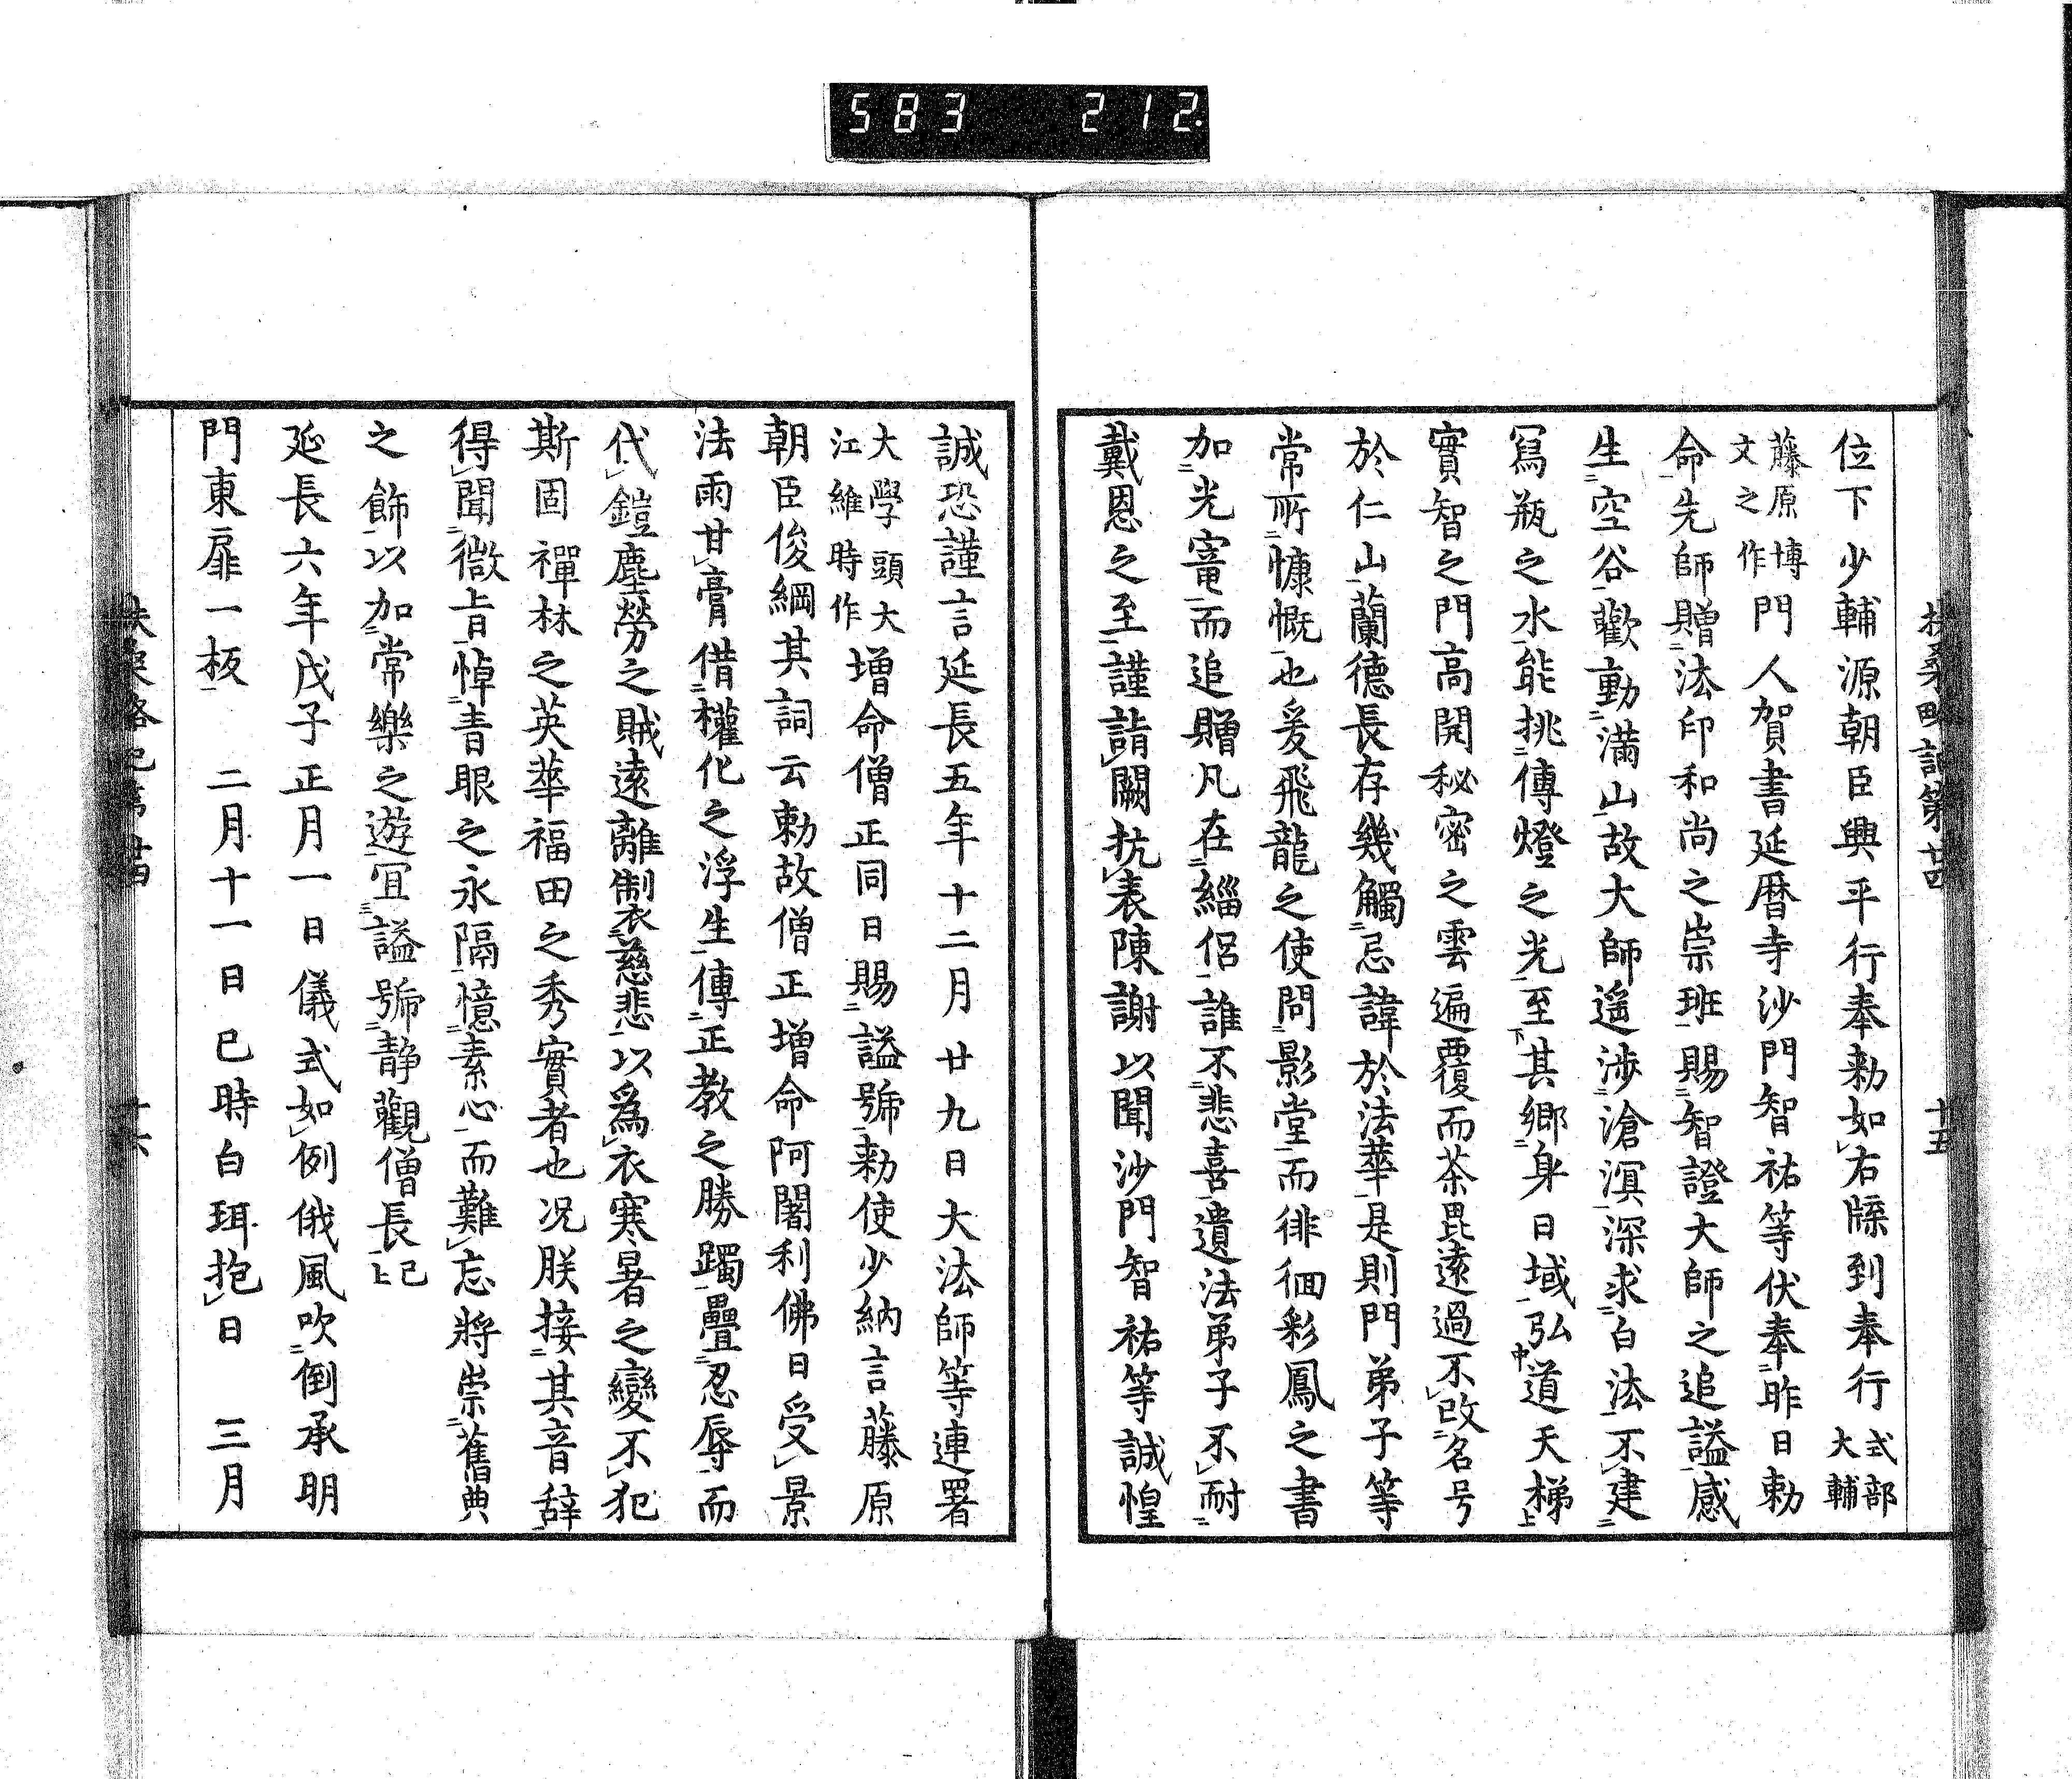 583 212.
扶桑略記第廿四 十五
位下少輔源朝臣興平行奉勅如右牒到奉行 式部大輔
藤原博文之作 門人賀書延暦寺沙門智祐等伏奉昨日勅
命先師贈法印和尚之崇班賜智證大師之追謚感
生空谷歡動滿山故大師遥渉滄溟深求白法不建
冩瓶之水能挑傳燈之光至其鄉身日域弘道天梯
實智之門高開秘密之雲遍覆而茶毘遠過不改名号
於仁山蘭德長存幾觸忌諱於法華是則門弟子等
常所慷慨也爰飛龍之使問影堂而徘徊彩鳳之書
加光竁而追贈凡在緇侣誰不悲喜遺法弟子不耐
戴恩之至謹詣闕抗表陳謝以聞沙門智祐等誠惶
誠恐謹言延長五年十二月廿九日大法師等連署
大學頭大江維時作 増命僧正同日賜謚號勅使少納言藤原
朝臣俊綱其詞云勅故僧正増命阿闍利佛日受景
法雨甘膏借權化之浮生傳正教之勝躅疊忍辱而
代鎧塵勞之賊遠離制衣慈悲以爲衣寒暑之變不犯
斯固禪林之英華福田之秀實者也况朕接其音辞
得聞微旨悼青眼之永隔憶素心而難忘將崇舊典
之飾以加常樂之遊冝謚號静觀僧長 已上
延長六年戊子正月一日儀式如例俄風吹倒承明
門東扉一板 二月十一日巳時白珥抱日 三月
扶桑略記第廿四 十六